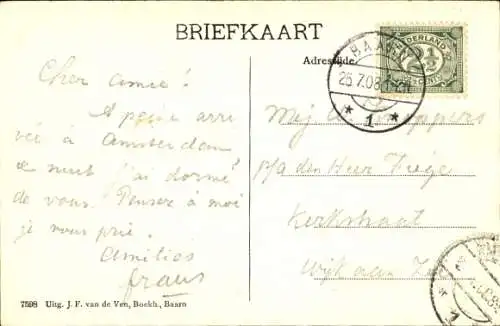 BRIEFKAART
Adreszijde
BAARN
NEDERLAND
2½
CENT
26.7.08
1
Cher amie!
A peine arri
vée à Amsterdam
de vous. Pensez à moi
je vous prie.
Amitiés
frans
Mej
p/a den Heer
Kerkstraat
Wijk aan Zee
7598 Uitg. J. F. van de Ven, Boekh., Baarn